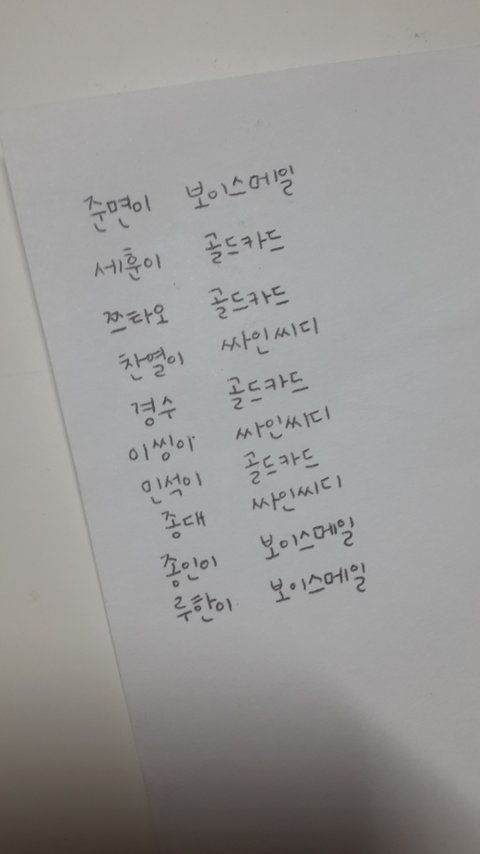 준면이 보이스메일
세훈이 골드카드
쯔타오 골드카드
찬열이 싸인씨디
경수 골드카드
이씽이 싸인씨디
민석이 골드카드
종대 싸인씨디
종인이 보이스메일
루한이 보이스메일